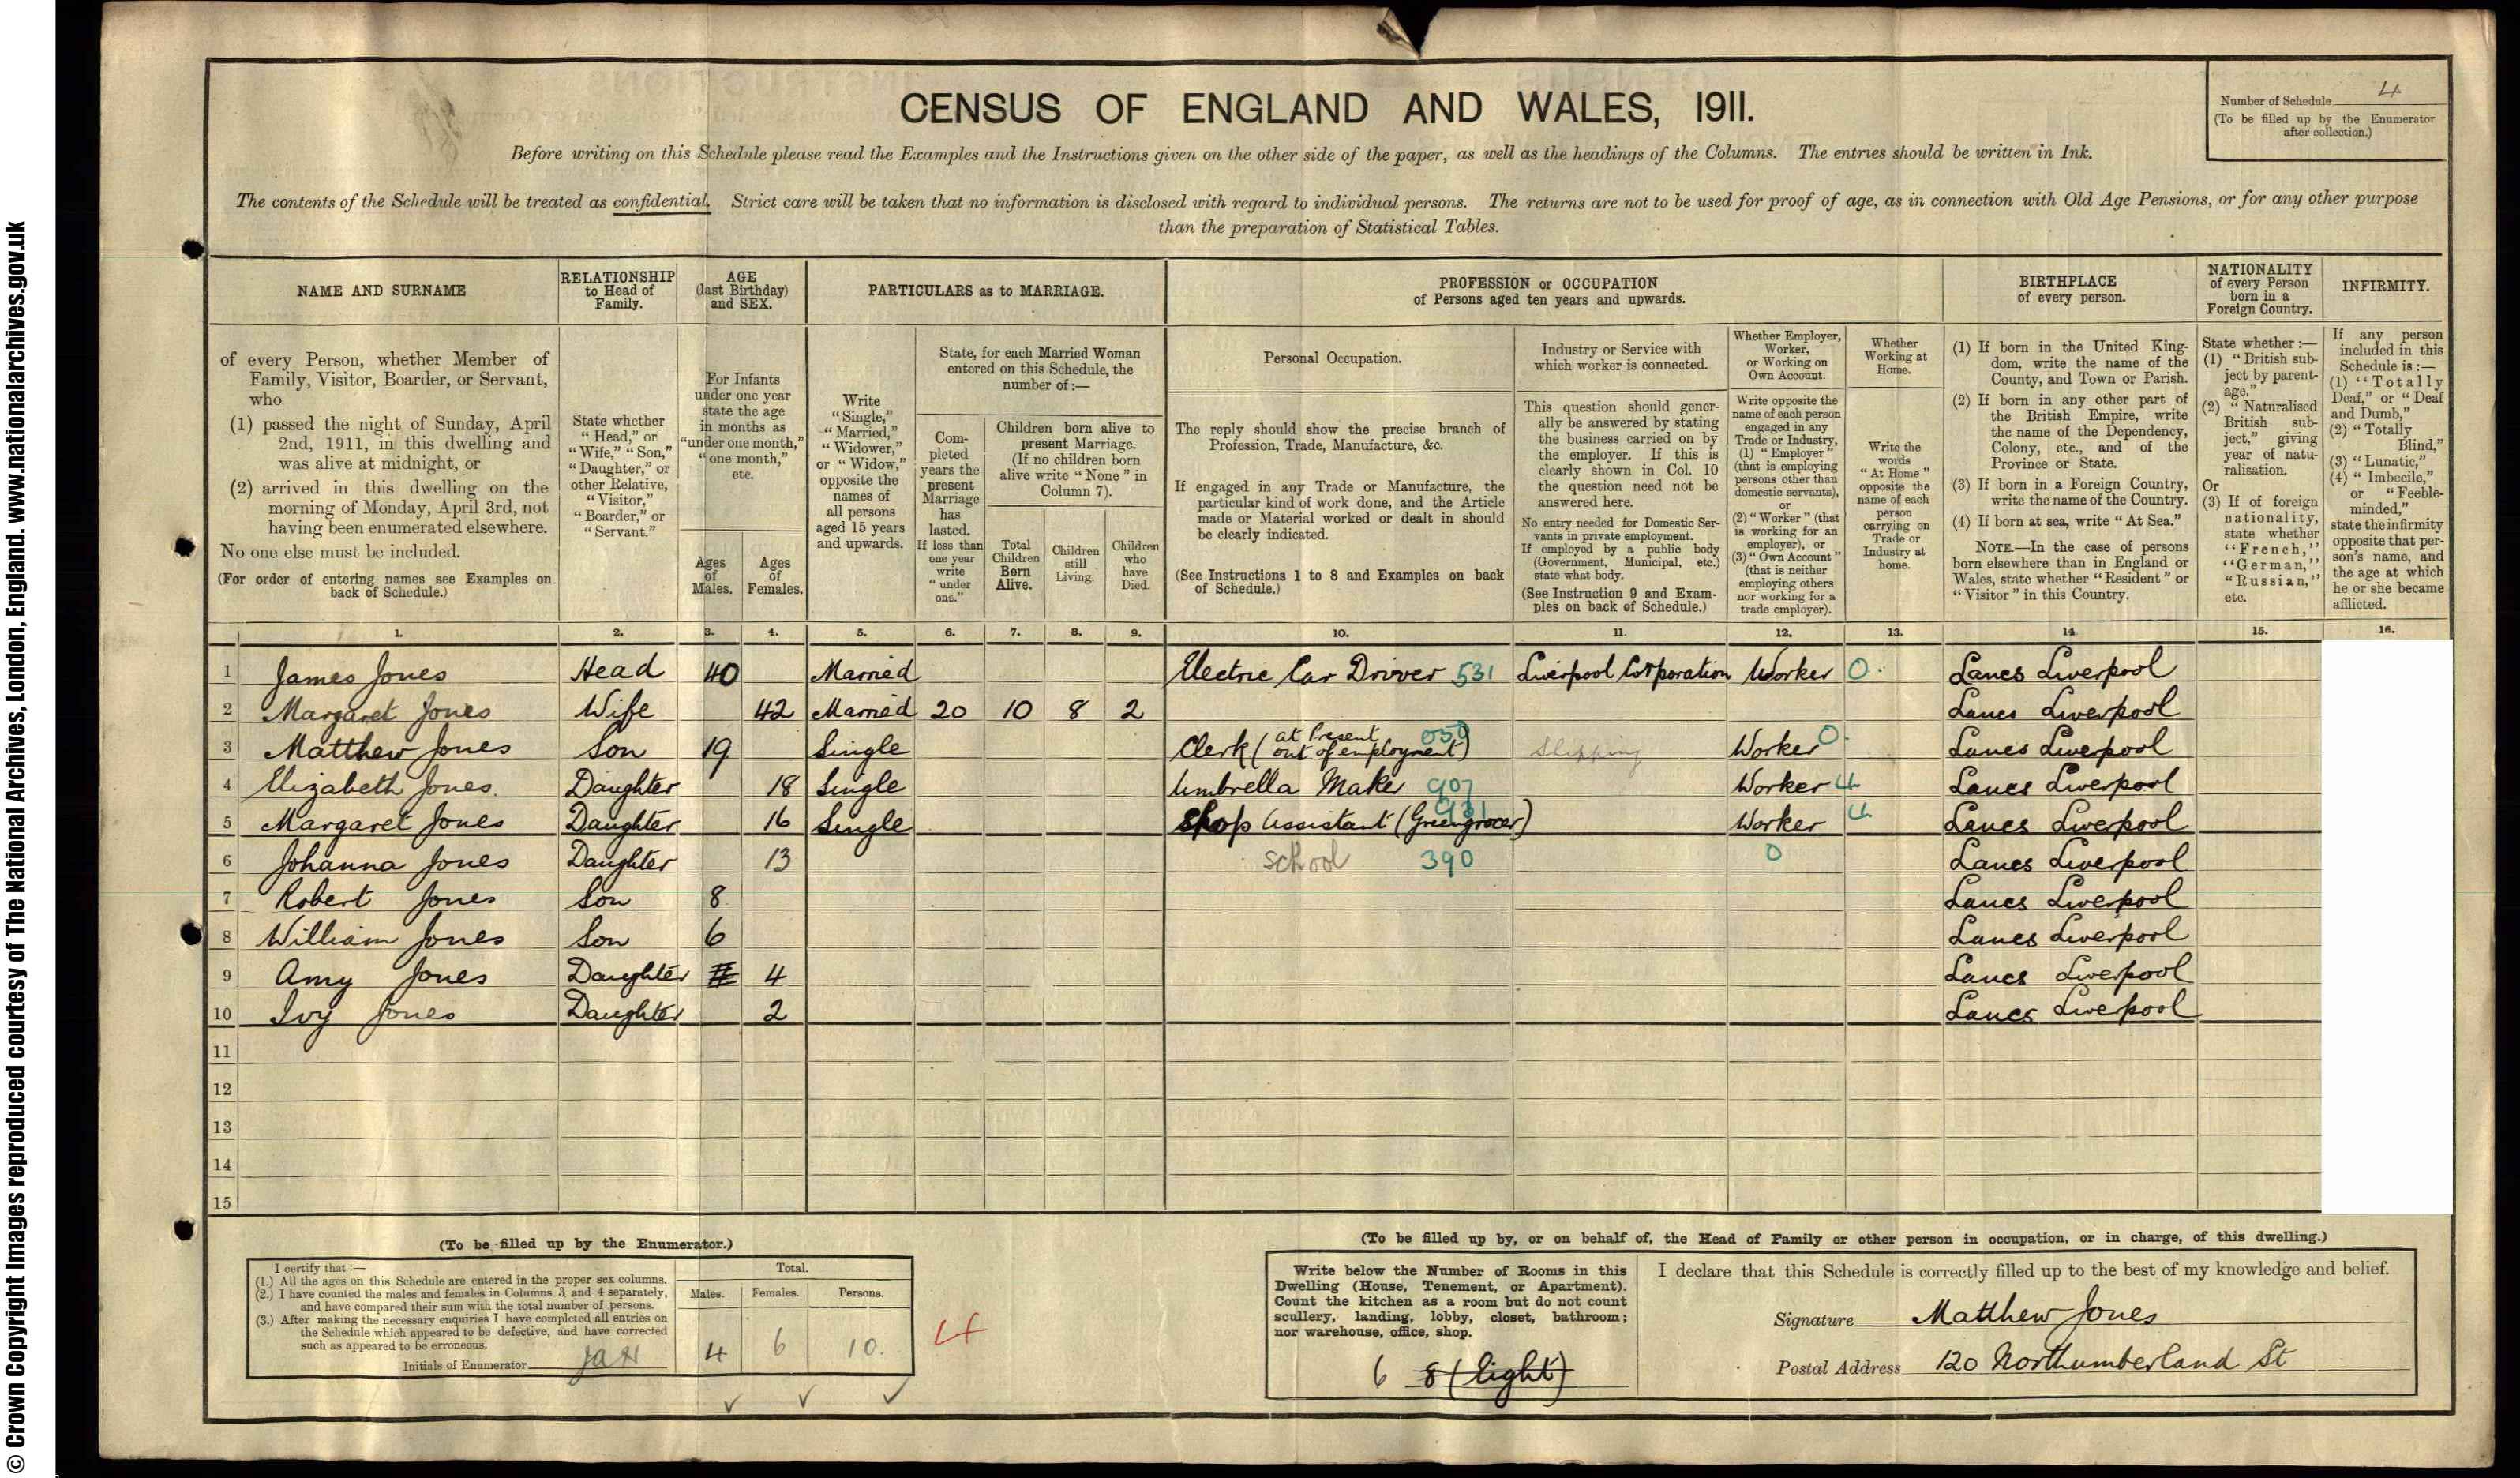 © Crown Copyright Images reproduced courtesy of The National Archives, London, England. www.nationalarchives.gov.uk
CENSUS OF ENGLAND AND WALES, 1911.
Number of Schedule 4
(To be filled up by the Enumerator
after collection.)
Before writing on this Schedule please read the Examples and the Instructions given on the other side of the paper, as well as the headings of the Columns. The entries should be written in Ink.
The contents of the Schedule will be treated as confidential. Strict care will be taken that no information is disclosed with regard to individual persons. The returns are not to be used for proof of age, as in connection with Old Age Pensions, or for any other purpose
than the preparation of Statistical Tables.
NAME AND SURNAME
of every Person, whether Member of
Family, Visitor, Boarder, or Servant,
who
(1) passed the night of Sunday, April
2nd, 1911, in this dwelling and
was alive at midnight, or
(2) arrived in this dwelling on the
morning of Monday, April 3rd, not
having been enumerated elsewhere.
No one else must be included.
(For order of entering names see Examples on
back of Schedule.)
RELATIONSHIP
to Head of
Family.
State whether
"Head," or
"Wife," "Son,"
"Daughter," or
other Relative,
"Visitor,"
"Boarder," or
"Servant."
AGE
(last Birthday)
and SEX.
For Infants
under one year
state the age
in months as
"under one month,"
"one month,"
etc.
Ages
of
Males.
Ages
of
Females.
PARTICULARS as to MARRIAGE.
Write
"Single,"
"Married,"
"Widower,"
or "Widow,"
opposite the
names of
all persons
aged 15 years
and upwards.
State, for each Married Woman
entered on this Schedule, the
number of:—
Com-
pleted
years the
present
Marriage
has
lasted.
If less than
one year
write
"under
one."
Children born alive to
present Marriage.
(If no children born
alive write "None" in
Column 7).
Total
Children
Born
Alive.
Children
still
Living.
Children
who
have
Died.
PROFESSION or OCCUPATION
of Persons aged ten years and upwards.
Personal Occupation.
The reply should show the precise branch of
Profession, Trade, Manufacture, &c.
If engaged in any Trade or Manufacture, the
particular kind of work done, and the Article
made or Material worked or dealt in should
be clearly indicated.
(See Instructions 1 to 8 and Examples on back
of Schedule.)
Industry or Service with
which worker is connected.
This question should gener-
ally be answered by stating
the business carried on by
the employer. If this is
clearly shown in Col. 10
the question need not be
answered here.
No entry needed for Domestic Ser-
vants in private employment.
If employed by a public body
(Government, Municipal, etc.)
state what body.
(See Instruction 9 and Exam-
ples on back of Schedule.)
Whether Employer,
Worker,
or Working on
Own Account.
Write opposite the
name of each person
engaged in any
Trade or Industry,
(1) "Employer"
(that is employing
persons other than
domestic servants),
or
(2) "Worker" (that
is working for an
employer), or
(3) "Own Account"
(that is neither
employing others
nor working for a
trade employer).
Whether
Working at
Home.
Write the
words
"At Home"
opposite the
name of each
person
carrying on
Trade or
Industry at
home.
BIRTHPLACE
of every person.
(1) If born in the United King-
dom, write the name of the
County, and Town or Parish.
(2) If born in any other part of
the British Empire, write
the name of the Dependency,
Colony, etc., and of the
Province or State.
(3) If born in a Foreign Country,
write the name of the Country.
(4) If born at sea, write "At Sea."
NOTE.—In the case of persons
born elsewhere than in England or
Wales, state whether "Resident" or
"Visitor" in this Country.
NATIONALITY
of every Person
born in a
Foreign Country.
State whether:—
(1) "British sub-
ject by parent-
age."
(2) "Naturalised
British sub-
ject," giving
year of natu-
ralisation.
Or
(3) If of foreign
nationality,
state whether
"French,"
"German,"
"Russian,"
etc.
INFIRMITY.
If any person
included in this
Schedule is:—
(1) "Totally
Deaf," or "Deaf
and Dumb,"
(2) "Totally
Blind,"
(3) "Lunatic,"
(4) "Imbecile,"
or "Feeble-
minded,"
state the infirmity
opposite that per-
son's name, and
the age at which
he or she became
afflicted.
1. 2. 3. 4. 5. 6. 7. 8. 9. 10. 11. 12. 13. 14 15. 16.
1 James Jones Head 40 Married Electric Car Driver 531 Liverpool Corporation Worker 0. Lancs Liverpool
2 Margaret Jones Wife 42 Married 20 10 8 2 Lancs Liverpool
3 Matthew Jones Son 19 Single Clerk (at Present out of employment) 050 Shipping Worker 0. Lancs Liverpool
4 Elizabeth Jones. Daughter 18 Single Umbrella Maker 907 Worker 4 Lancs Liverpool
5 Margaret Jones Daughter 16 Single Shop Assistant (Greengrocer) 931 Worker 4 Lancs Liverpool
6 Johanna Jones Daughter 13 School 390 0 Lancs Liverpool
7 Robert Jones Son 8 Lancs Liverpool
8 William Jones Son 6 Lancs Liverpool
9 Amy Jones Daughter 4 Lancs Liverpool
10 Ivy Jones Daughter 2 Lancs Liverpool
11
12
13
14
15
(To be filled up by the Enumerator.)
I certify that:—
(1.) All the ages on this Schedule are entered in the proper sex columns.
(2.) I have counted the males and females in Columns 3 and 4 separately,
and have compared their sum with the total number of persons.
(3.) After making the necessary enquiries I have completed all entries on
the Schedule which appeared to be defective, and have corrected
such as appeared to be erroneous.
Initials of Enumerator
Total.
Males. Females. Persons.
4 6 10.
(To be filled up by, or on behalf of, the Head of Family or other person in occupation, or in charge, of this dwelling.)
Write below the Number of Rooms in this
Dwelling (House, Tenement, or Apartment).
Count the kitchen as a room but do not count
scullery, landing, lobby, closet, bathroom;
nor warehouse, office, shop.
6 8 (light)
I declare that this Schedule is correctly filled up to the best of my knowledge and belief.
Signature Matthew Jones
Postal Address 120 Northumberland St